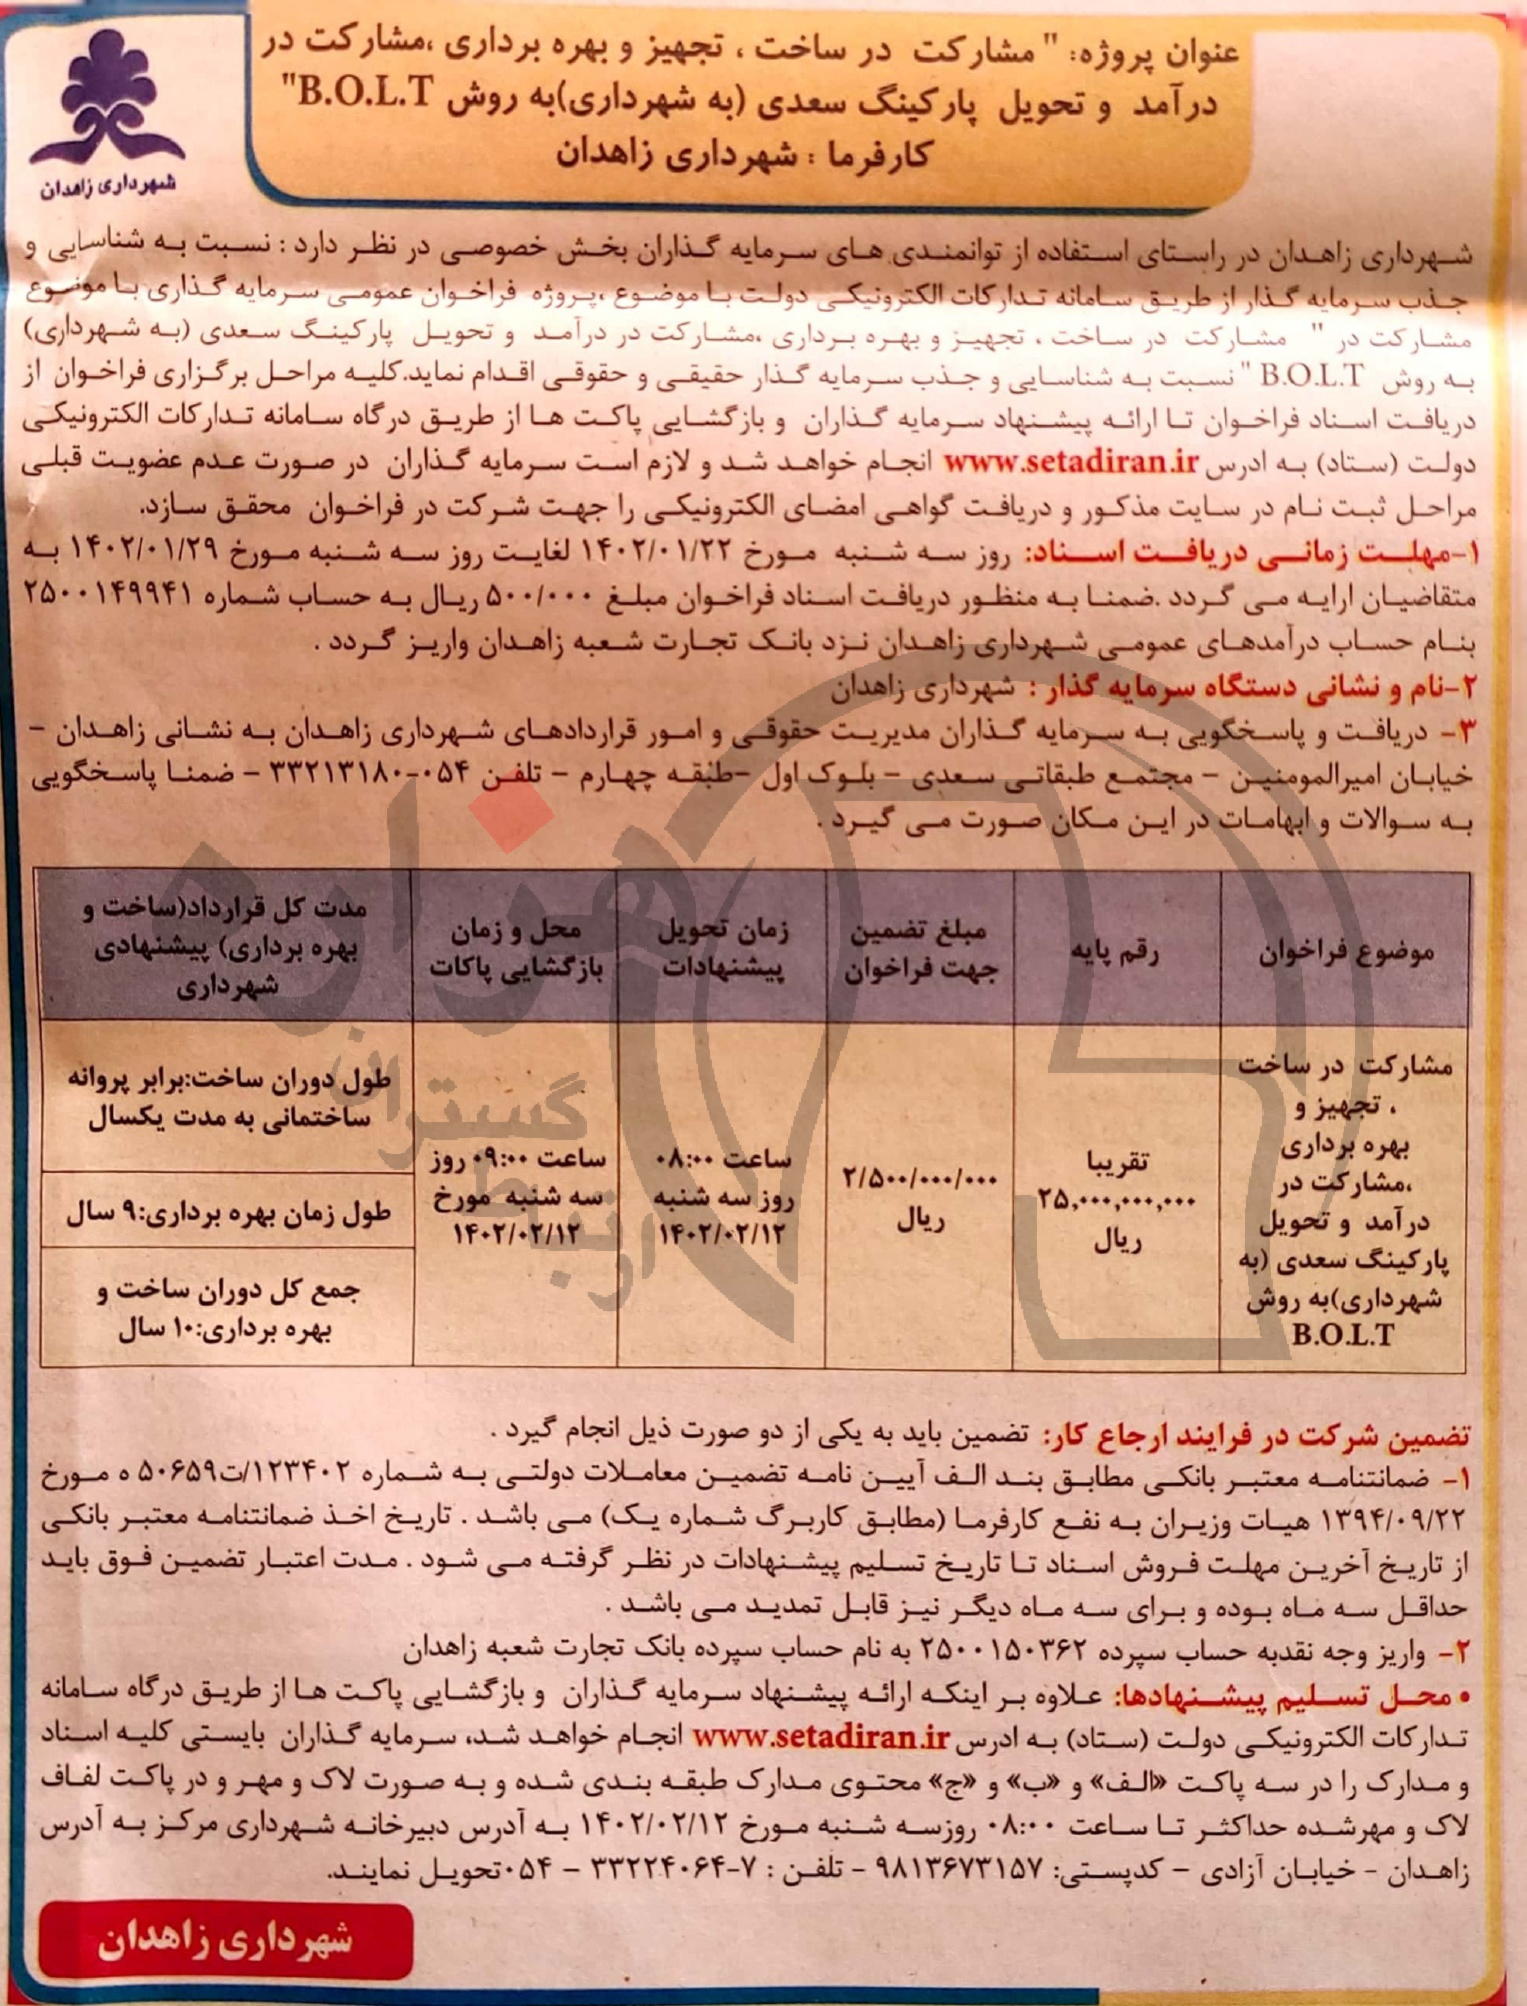 عنوان پروژه: " مشارکت در ساخت ، تجهیز و بهره برداری ،مشارکت در
درآمد و تحویل پارکینگ سعدی (به شهرداری)به روش B.O.L.T"
کارفرما : شهرداری زاهدان
شهرداری زاهدان
شهرداری زاهدان در راستای استفاده از توانمندی های سرمایه گذاران بخش خصوصی در نظر دارد : نسبت به شناسایی و
جذب سرمایه گذار از طریق سامانه تدارکات الکترونیکی دولت با موضوع ،پروژه فراخوان عمومی سرمایه گذاری با موضوع
مشارکت در " مشارکت در ساخت ، تجهیز و بهره برداری ،مشارکت در درآمد و تحویل پارکینگ سعدی (به شهرداری)
به روش B.O.L.T "نسبت به شناسایی و جذب سرمایه گذار حقیقی و حقوقی اقدام نماید.کلیه مراحل برگزاری فراخوان از
دریافت اسناد فراخوان تا ارائه پیشنهاد سرمایه گذاران و بازگشایی پاکت ها از طریق درگاه سامانه تدارکات الکترونیکی
دولت (ستاد) به ادرس www.setadiran.ir انجام خواهد شد و لازم است سرمایه گذاران در صورت عدم عضویت قبلی
مراحل ثبت نام در سایت مذکور و دریافت گواهی امضای الکترونیکی را جهت شرکت در فراخوان محقق سازد.
۱-مهلت زمانی دریافت اسناد: روز سه شنبه مورخ ۱۴۰۲/۰۱/۲۲ لغایت روز سه شنبه مورخ ۱۴۰۲/۰۱/۲۹ به
متقاضیان ارایه می گردد .ضمنا به منظور دریافت اسناد فراخوان مبلغ ۵۰۰/۰۰۰ ریال به حساب شماره ۲۵۰۰۱۴۹۹۴۱
بنام حساب درآمدهای عمومی شهرداری زاهدان نزد بانک تجارت شعبه زاهدان واریز گردد .
۲-نام و نشانی دستگاه سرمایه گذار : شهرداری زاهدان
۳- دریافت و پاسخگویی به سرمایه گذاران مدیریت حقوقی و امور قراردادهای شهرداری زاهدان به نشانی زاهدان -
خیابان امیرالمومنین - مجتمع طبقاتی سعدی - بلوک اول -طبقه چهارم - تلفن ۰۵۴-۳۳۲۱۳۱۸۰ - ضمنا پاسخگویی
به سوالات و ابهامات در این مکان صورت می گیرد .
موضوع فراخوان
رقم پایه
مبلغ تضمین
جهت فراخوان
زمان تحویل
پیشنهادات
محل و زمان
بازگشایی پاکات
مدت کل قرارداد(ساخت و
بهره برداری) پیشنهادی
شهرداری
مشارکت در ساخت
، تجهیز و
بهره برداری
،مشارکت در
درآمد و تحویل
پارکینگ سعدی (به
شهرداری)به روش
B.O.L.T
تقریبا
۲۵,۰۰۰,۰۰۰,۰۰۰
ریال
۲/۵۰۰/۰۰۰/۰۰۰
ریال
ساعت ۰۸:۰۰
روز سه شنبه
۱۴۰۲/۰۲/۱۲
ساعت ۰۹:۰۰ روز
سه شنبه مورخ
۱۴۰۲/۰۲/۱۲
طول دوران ساخت:برابر پروانه
ساختمانی به مدت یکسال
طول زمان بهره برداری:۹ سال
جمع کل دوران ساخت و
بهره برداری:۱۰ سال
هزاره
گستران
ارتباط
تضمین شرکت در فرایند ارجاع کار: تضمین باید به یکی از دو صورت ذیل انجام گیرد .
۱- ضمانتنامه معتبر بانکی مطابق بند الف آیین نامه تضمین معاملات دولتی به شماره ۱۲۳۴۰۲/ت۵۰۶۵۹ ه مورخ
۱۳۹۴/۰۹/۲۲ هیات وزیران به نفع کارفرما (مطابق کاربرگ شماره یک) می باشد . تاریخ اخذ ضمانتنامه معتبر بانکی
از تاریخ آخرین مهلت فروش اسناد تا تاریخ تسلیم پیشنهادات در نظر گرفته می شود . مدت اعتبار تضمین فوق باید
حداقل سه ماه بوده و برای سه ماه دیگر نیز قابل تمدید می باشد .
۲- واریز وجه نقدبه حساب سپرده ۲۵۰۰۱۵۰۳۶۲ به نام حساب سپرده بانک تجارت شعبه زاهدان
• محل تسلیم پیشنهادها: علاوه بر اینکه ارائه پیشنهاد سرمایه گذاران و بازگشایی پاکت ها از طریق درگاه سامانه
تدارکات الکترونیکی دولت (ستاد) به ادرس www.setadiran.ir انجام خواهد شد، سرمایه گذاران بایستی کلیه اسناد
و مدارک را در سه پاکت «الف» و «ب» و «ج» محتوی مدارک طبقه بندی شده و به صورت لاک و مهر و در پاکت لفاف
لاک و مهرشده حداکثر تا ساعت ۰۸:۰۰ روزسه شنبه مورخ ۱۴۰۲/۰۲/۱۲ به آدرس دبیرخانه شهرداری مرکز به آدرس
زاهدان - خیابان آزادی - کدپستی: ۹۸۱۳۶۷۳۱۵۷ - تلفن : ۷-۳۳۲۲۴۰۶۴ - ۰۵۴تحویل نمایند.
شهرداری زاهدان